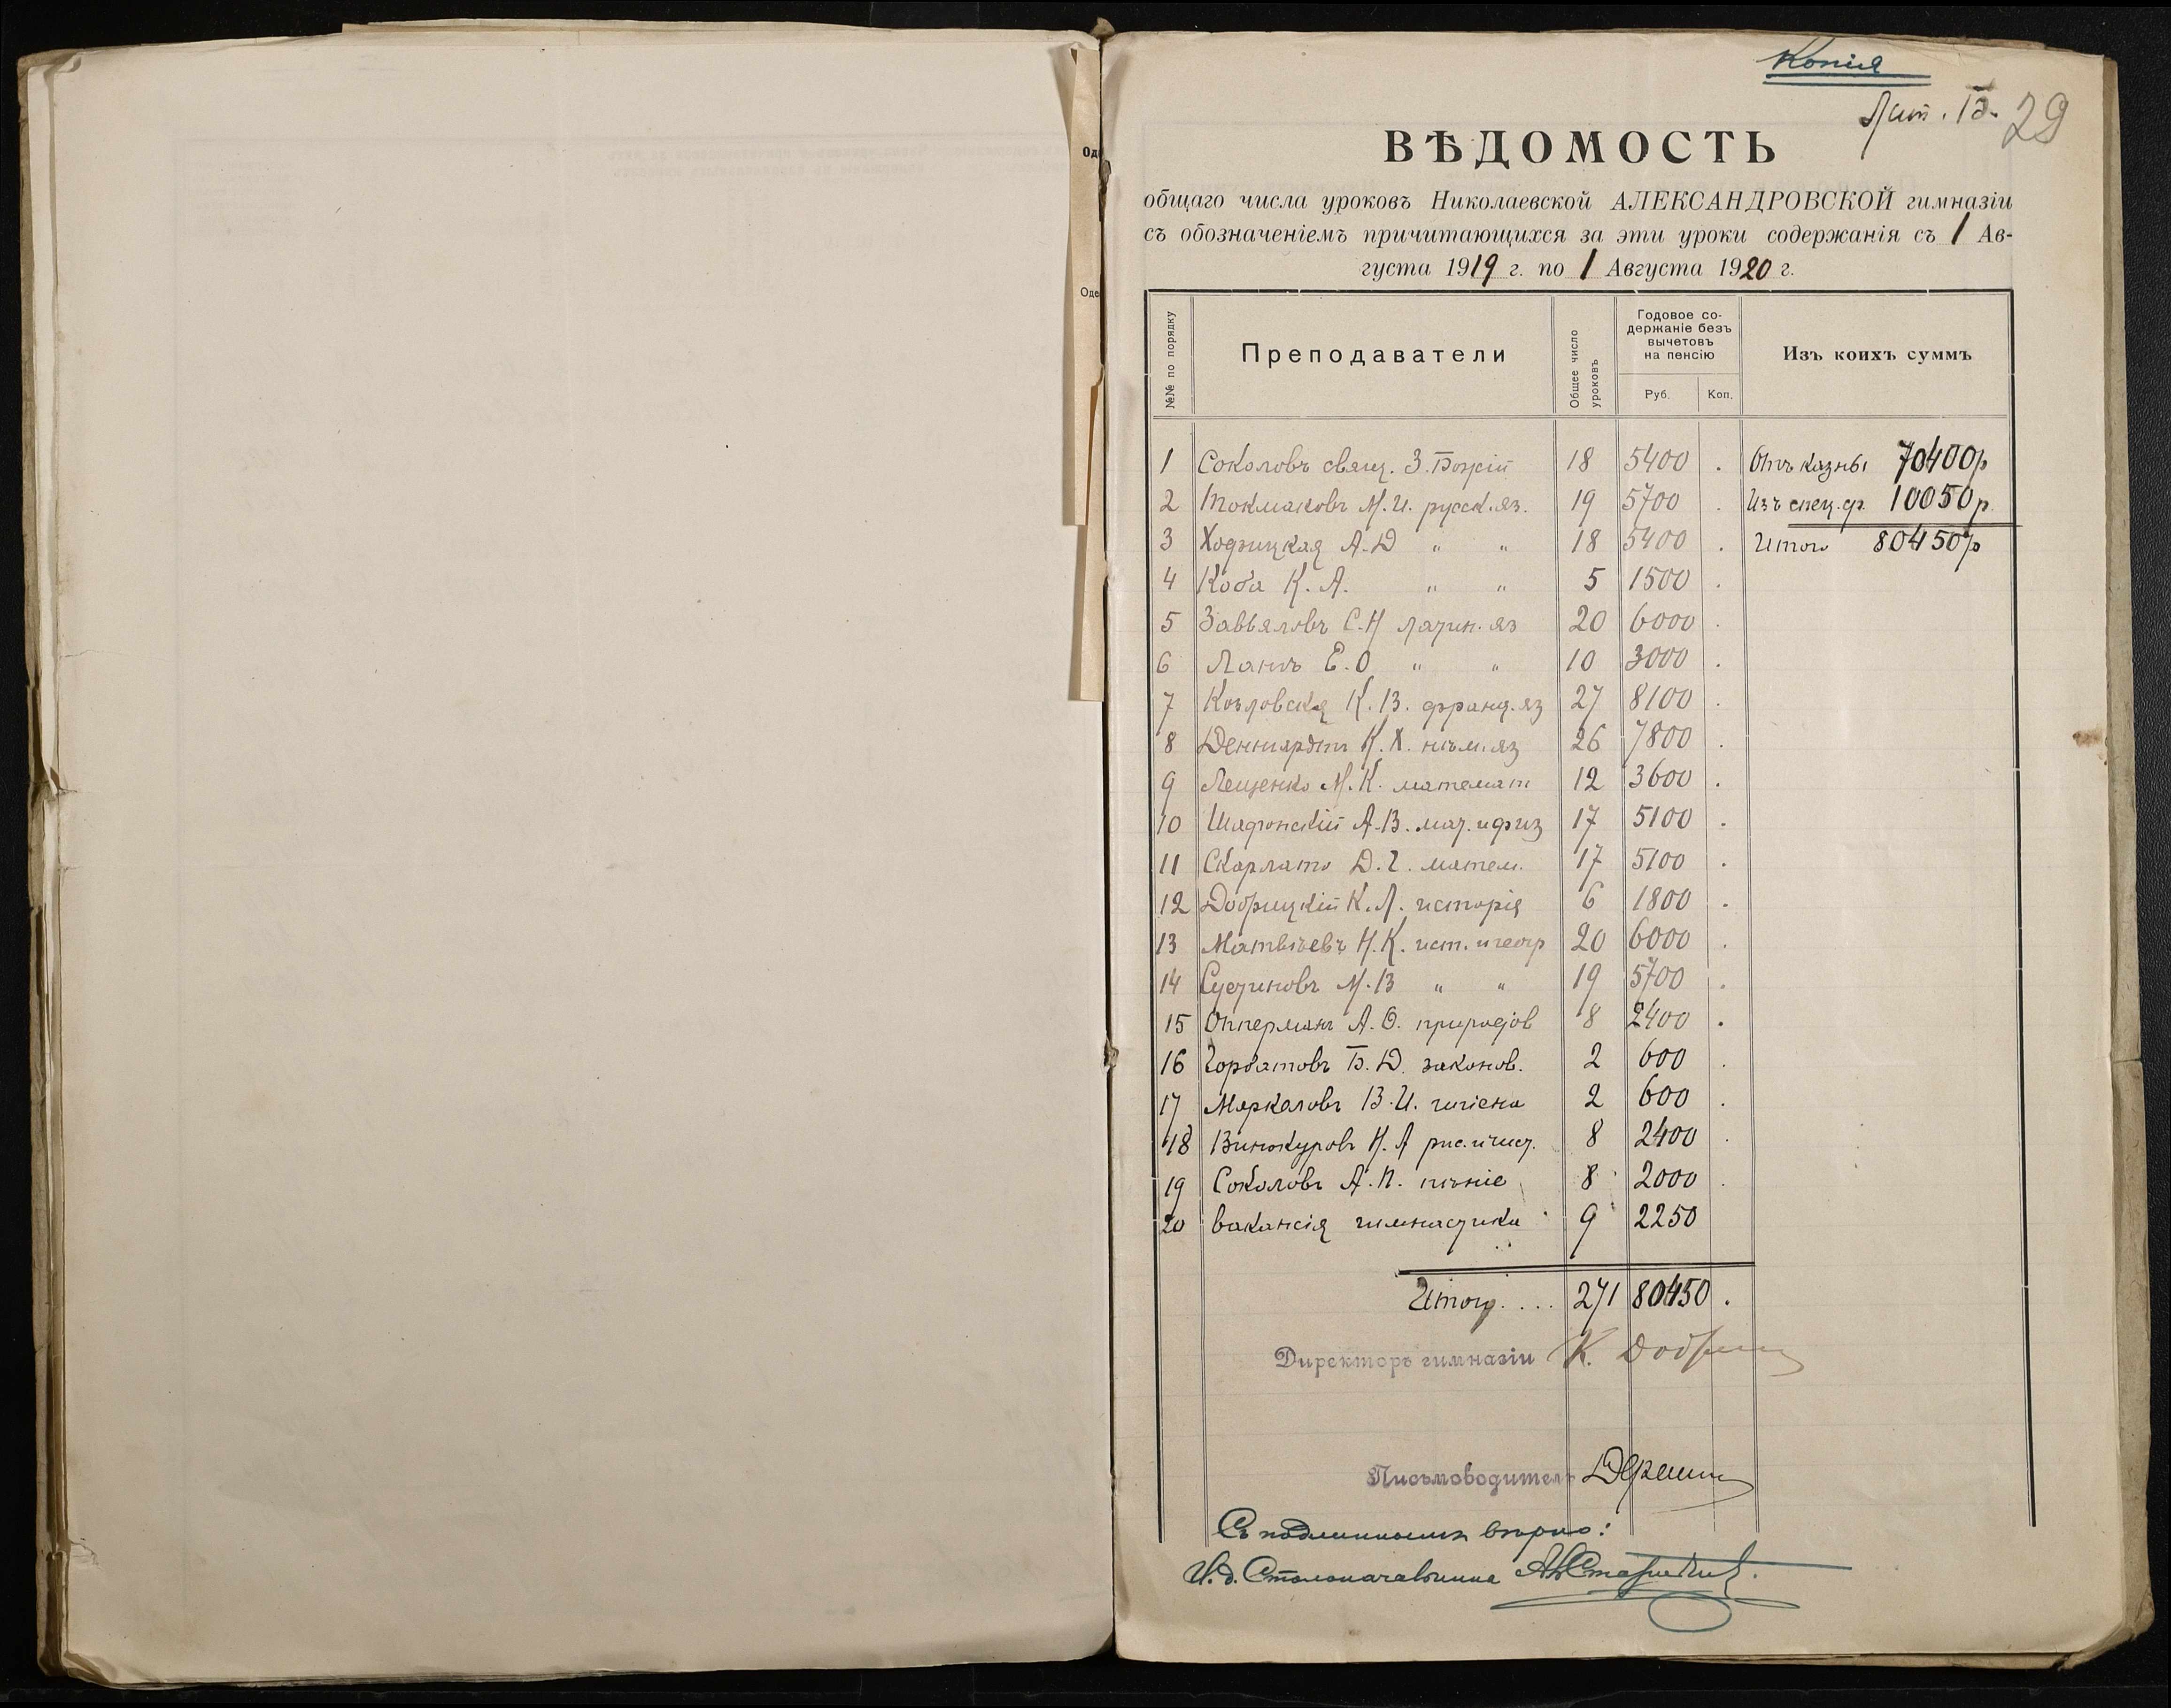 Копія
Лит. Б. 29
ВѢДОМОСТЬ
общаго числа уроковъ Николаевской АЛЕКСАНДРОВСКОЙ гимназіи
съ обозначеніемъ причитающихся за эти уроки содержанія съ 1 Ав-
густа 1919 г. по 1 Августа 1920 г.
№№ по порядку
Преподаватели
Общее число уроковъ
Годовое со-
держаніе безъ
вычетовъ
на пенсію
Руб. Коп.
Изъ коихъ суммъ
1 Соколовъ свящ. З. Божій 18 5400 . Отъ казны 70400р
2 Токмаковъ М.И. русск. яз. 19 5700 . Изъ спец. ср. 10050р.
3 Ходзицкая А.Д " " 18 5400 . Итого 80450р
4 Коба К. А. " " 5 1500 .
5 Завьяловъ С.Н латин. яз 20 6000 .
6 Е.О " " 10 3000 .
7 Козловская К. В. франц. яз 27 8100 .
8 К. Х. нѣм. яз 26 7800 .
9 Лещенко М. К. математ 12 3600 .
10 Шафонскій А.В. мат. и физ 17 5100 .
11 Скарлато Д. Г. матем. 17 5100 .
12 Добрицкій К. Л. исторія 6 1800 .
13 Матвѣевъ Н. К. ист. и геогр 20 6000 .
14 М. В " " 19 5700 .
15 Опперманъ А. О. природов 8 2400 .
16 Горбатовъ Б. Д. законов. 2 600 .
17 Маркеловъ В. И. гигіена 2 600 .
18 Винокуровъ Н. А рис. и чист. 8 2400 .
19 Соколовъ А. П. пѣніе 8 2000 .
20 вакансія гимнастики 9 2250
Итого .... 271 80450 .
Директоръ гимназіи К.
Письмоводитель
Съ подлиннымъ вѣрно:
И. д. Столоначальника
Од
Оде